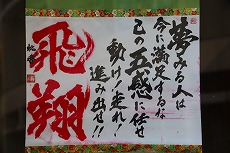 夢みる人は
今に満足するな
己の五感に任せ
動け!走れ!
進み出せ!!
飛翔